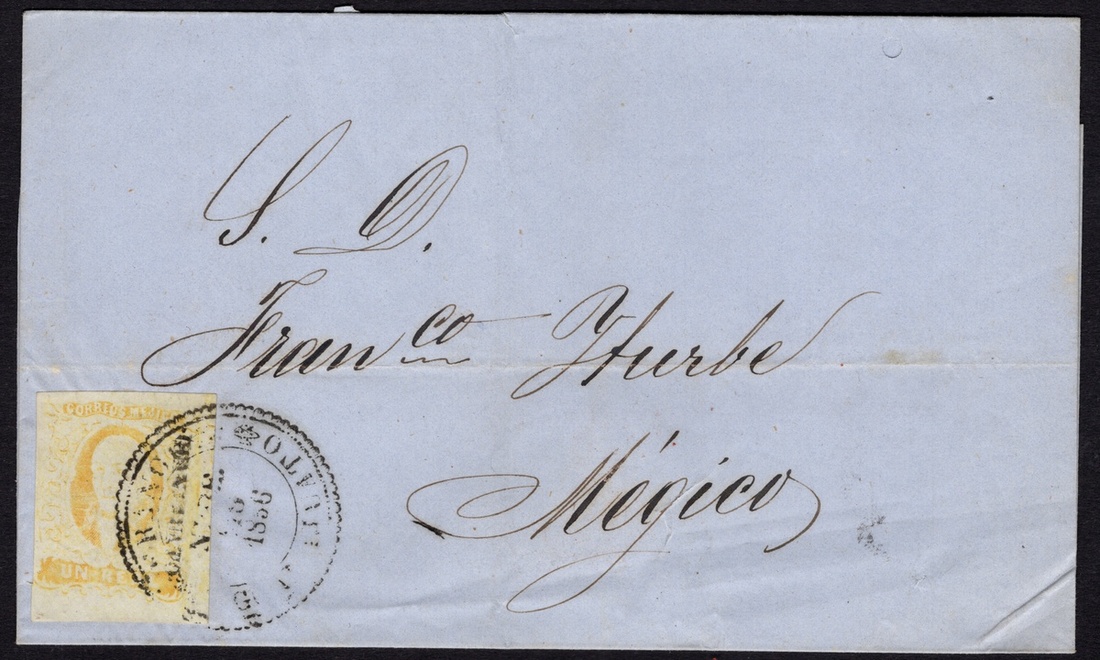 S. D.
Fran co Yturbe
Mégico
CORREOS MEJICO
UN REAL
FRANCO
GUANAJUATO
1856